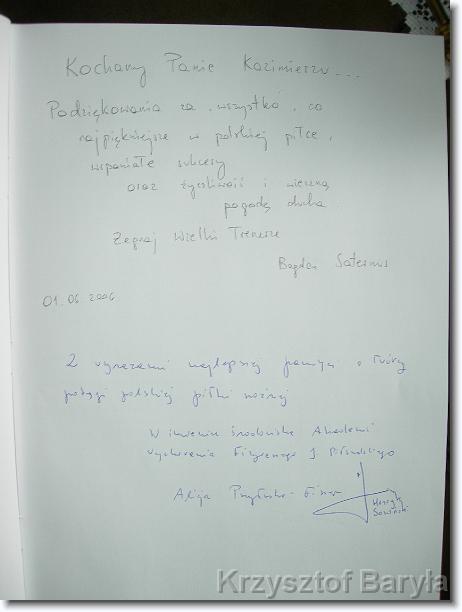 Kochany Panie Kazimierzu...
Podziękowania za wszystko, co
najpiękniejsze w polskiej piłce,
wspaniałe sukcesy
oraz życzliwość i wieczną
pogodę ducha.
Żegnaj Wielki Trenerze
Bogdan
01.06.2006
Z wyrazami najlepszej pamięci o twórcy
potęgi polskiej piłki nożnej
W imieniu środowiska Akademii
Wychowania Fizycznego J. Piłsudskiego
Alicja
Henryk
Sowiński
Krzysztof Baryła